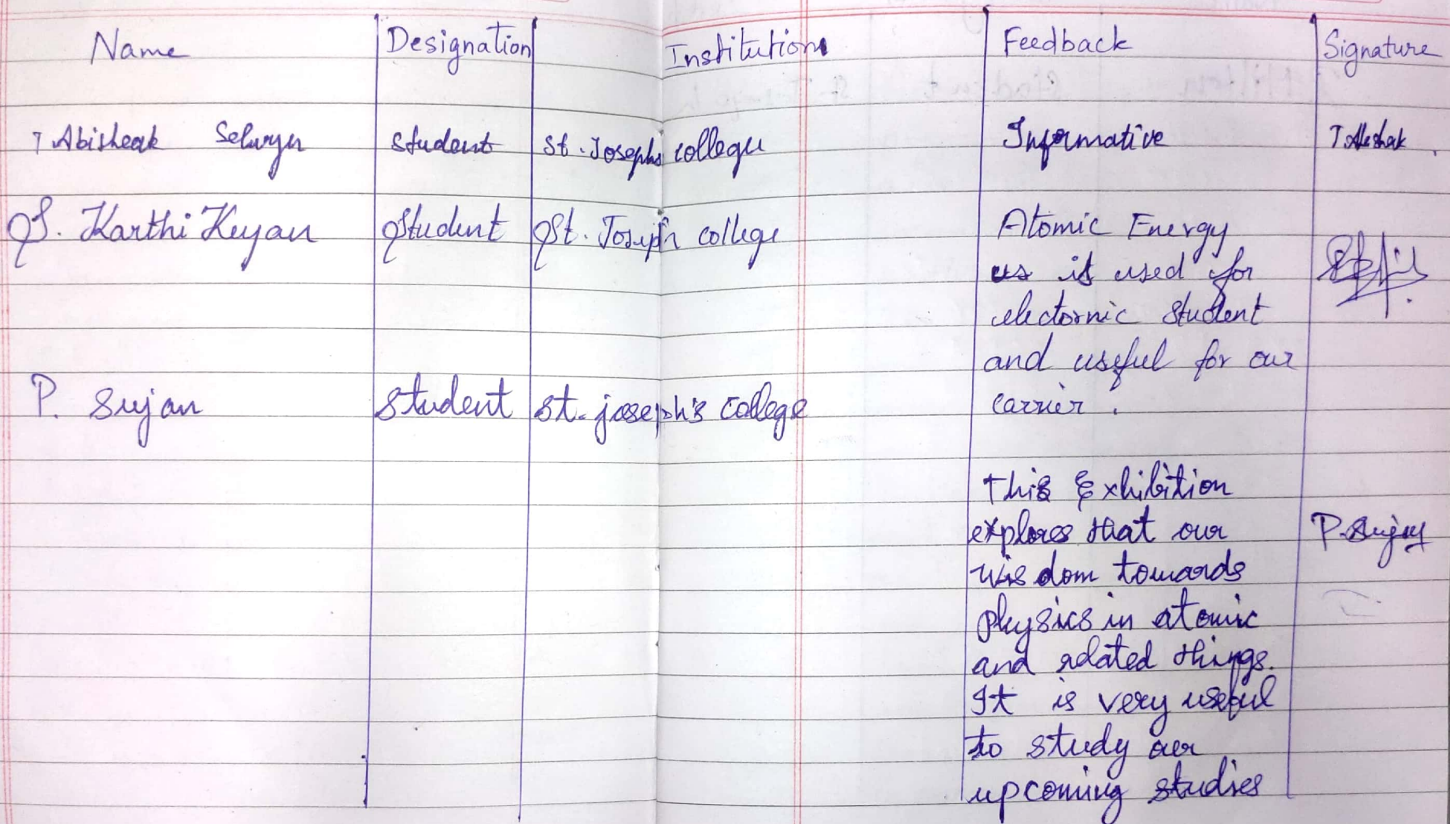 Name Designation Institution Feedback Signature
T Abisheak Selvryn student St. Josephs college Informative T Abishak
S. Karthi Keyan Student St. Joseph college Atomic Energy
us is used for
electornic student
and useful for our
P. Sujan student st. joseph's college carrier.
This Exhibition
explores that our P. Sujan
wisdom towards
physics in atomic
and related things.
It is very useful
to study our
upcoming studies